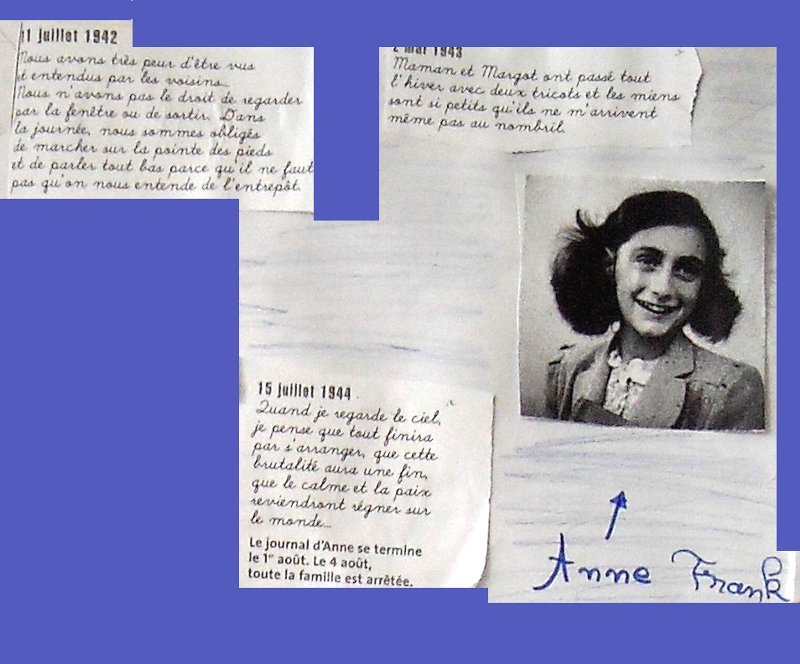 11 juillet 1942
Nous avons très peur d'être vus
et entendus par les voisins...
Nous n'avons pas le droit de regarder
par la fenêtre ou de sortir. Dans
la journée, nous sommes obligés
de marcher sur la pointe des pieds
et de parler tout bas parce qu'il ne faut
pas qu'on nous entende de l'entrepôt.
2 mai 1943
Maman et Margot ont passé tout
l'hiver avec deux tricots et les miens
sont si petits qu'ils ne m'arrivent
même pas au nombril.
15 juillet 1944
Quand je regarde le ciel,
je pense que tout finira
par s'arranger, que cette
brutalité aura une fin,
que le calme et la paix
reviendront régner sur
le monde...
Le journal d'Anne se termine
le 1er août. Le 4 août,
toute la famille est arrêtée.
Anne Frank